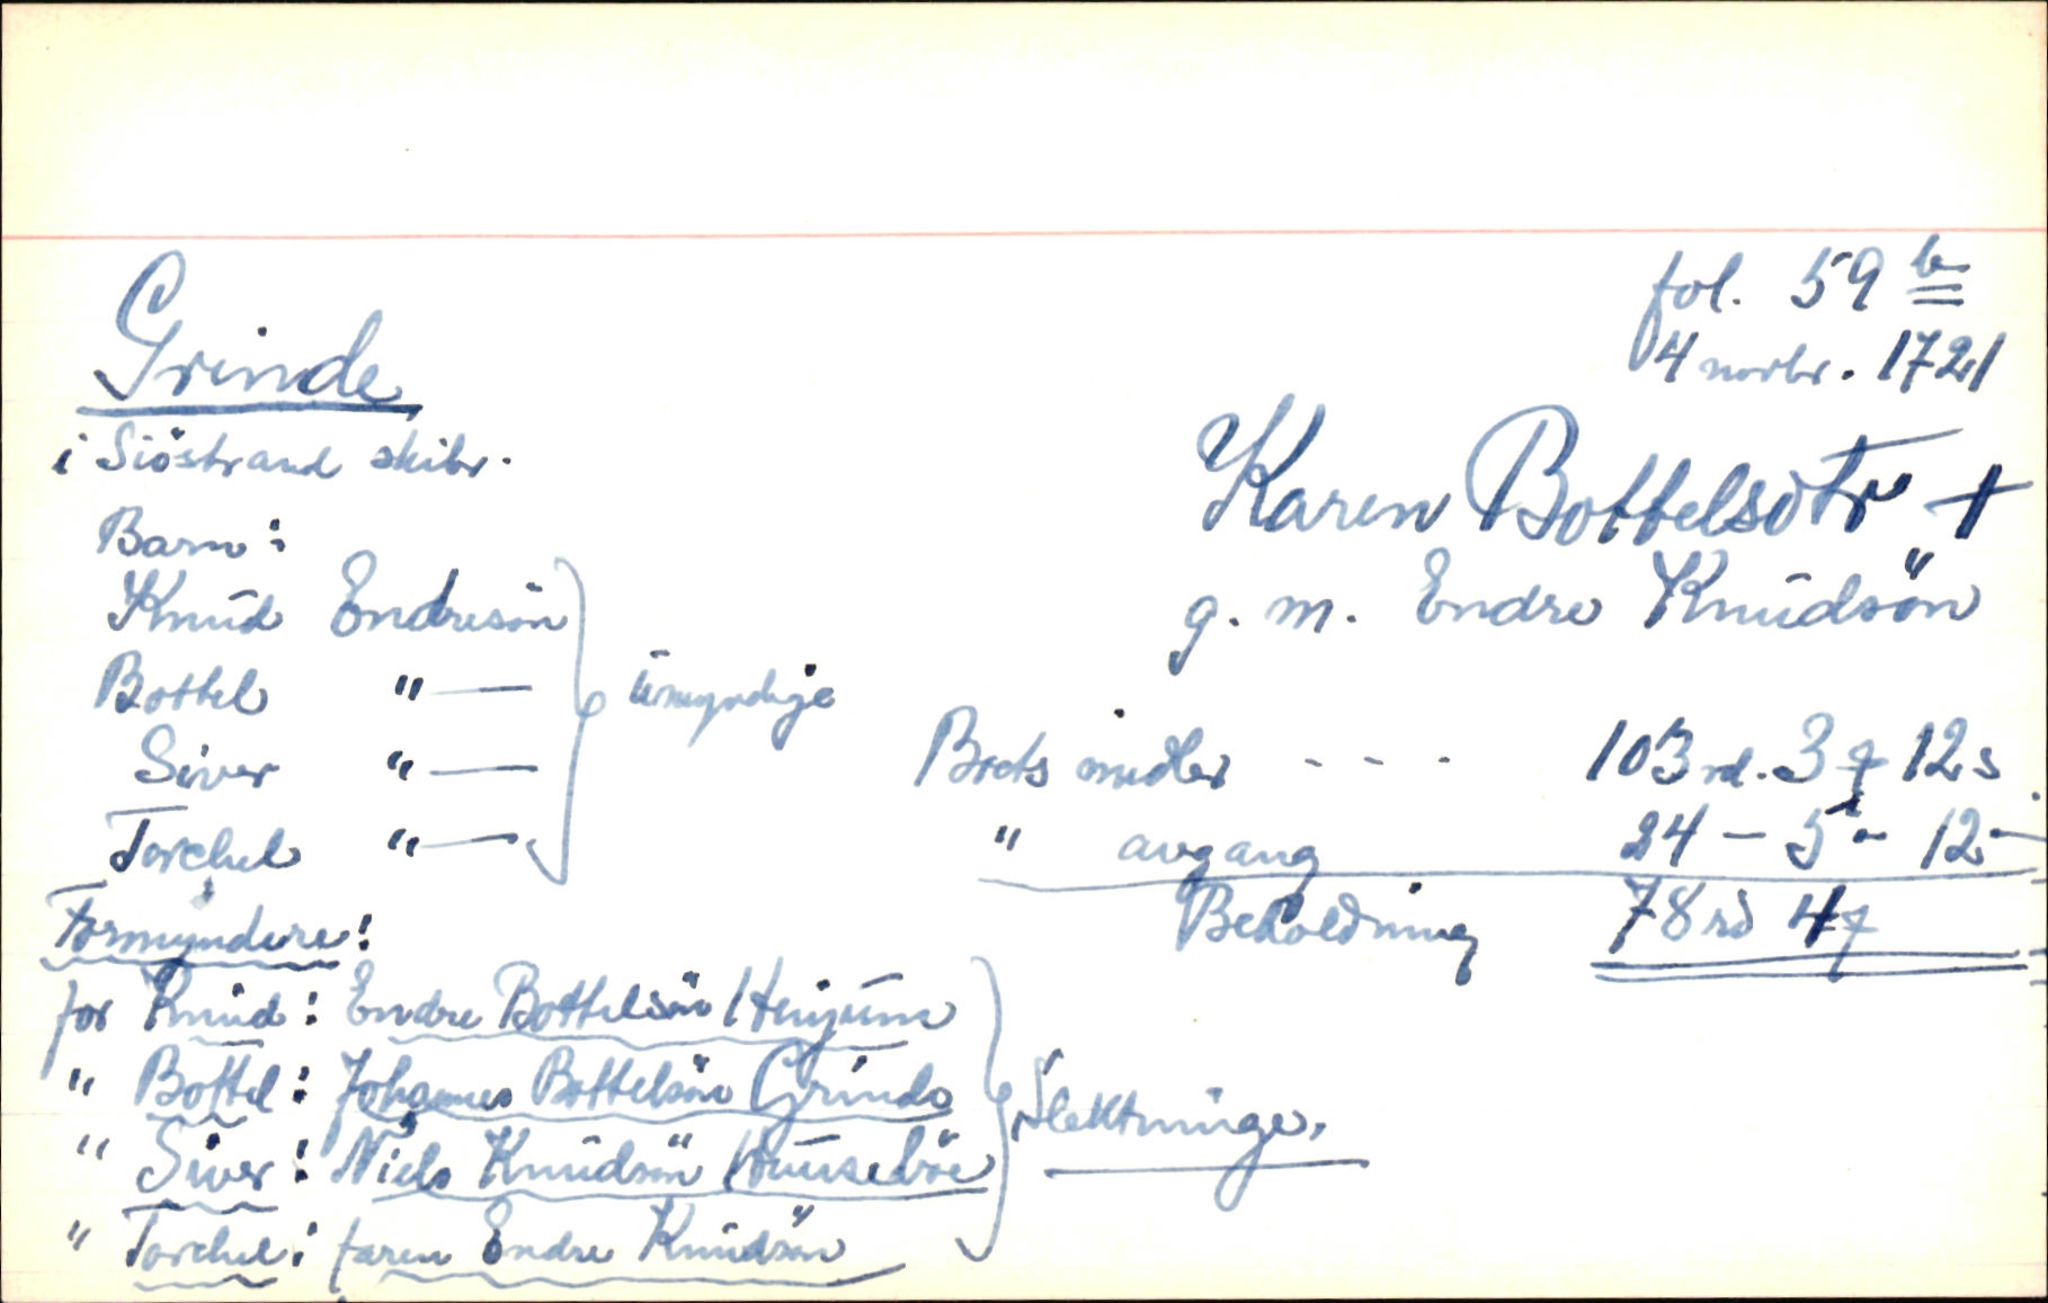 fol. 59 b
4 novbr. 1721
Grinde
i Siöstrand skibr.
Karen Bottelsdtr +
g. m. Endre Knudsön
Barn:
Knud Endresön
Bottel " —
Siver " —
Torchel " —
umyndige
Boets midler - - - 103 rd. 3 ƒ 12 s
" avgang 24 — 5 - 12 -
Beholdning 78 rd 4 ƒ
Formyndere:
for Knud: Endre Bottelsön Henjum
" Bottel: Johannes Bottelsön Grinde
" Siver: Niels Knudsön Huuseböe
" Torchel: faren Endre Knudsön
Slektninge.